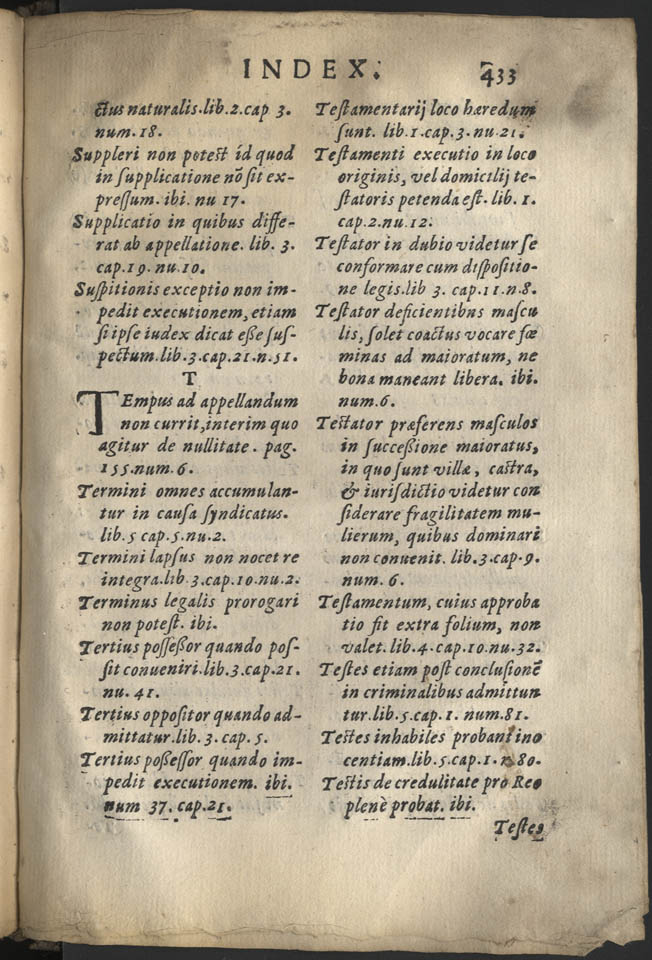 INDEX.
433
ctus naturalis.lib.2.cap 3.
num.18.
Suppleri non potest id quod
in supplicatione nõ sit ex-
pressum.ibi. nu 17.
Supplicatio in quibus diffe-
rat ab appellatione. lib. 3.
cap.19.nu.10.
Suspitionis exceptio non im-
pedit executionem, etiam
si ipse iudex dicat eße sus-
pectum.lib.3.cap.21.n.51.
T
TEmpus ad appellandum
non currit, interim quo
agitur de nullitate. pag.
155.num.6.
Termini omnes accumulan-
tur in causa syndicatus.
lib.5 cap.5.nu.2.
Termini lapsus non nocet re
integra.lib.3.cap.10.nu.2.
Terminus legalis prorogari
non potest. ibi.
Tertius posseßor quando pos-
sit conueniri.lib.3.cap.21.
nu. 41.
Tertius oppositor quando ad-
mittatur.lib.3. cap. 5.
Tertius poßessor quando im-
pedit executionem. ibi.
num 37. cap.21.
Testamentarij loco hæredum
sunt. lib.1.cap.3.nu.21.
Testamenti executio in loco
originis, vel domicilij te-
statoris petenda est. lib. 1.
cap.2.nu.12.
Testator in dubio videtur se
conformare cum dispositio-
ne legis.lib 3. cap.11.n.8.
Testator deficientibus mascu
lis, solet coactus vocare fæ
minas ad maioratum, ne
bona maneant libera. ibi.
num.6.
Testator præferens masculos
in succeßione maioratus,
in quo sunt villæ, castra,
& iurisdictio videtur con
siderare fragilitatem mu-
lierum, quibus dominari
non conuenit. lib.3.cap.9.
num. 6.
Testamentum, cuius approba
tio fit extra folium, non
valet.lib.4.cap.10.nu.32.
Testes etiam post conclusionẽ
in criminalibus admittun
tur.lib.5.cap.1. num.81.
Testes inhabiles probant ino
centiam.lib.5.cap.1.n.80.
Testis de credulitate pro Reo
plenè probat. ibi.
Testes